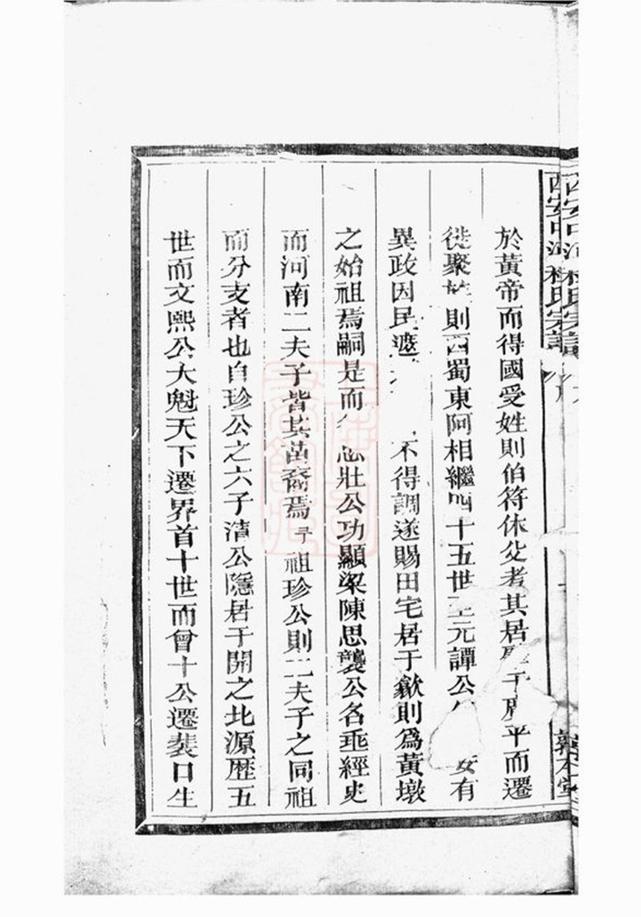 西安中河程氏宗譜
於黃帝而得國受姓則伯符休父者其居平而遷
徙聚族則西蜀東阿相繼四十五世至元譚公有
異政因民遮不得調遂賜田宅居于歙則為黃墩
之始祖焉嗣是而忠壯公功顯梁陳思襲公名垂經史
而河南二夫子皆其苗裔焉祖珍公則二夫子之同祖
而分支者也自珍公之六子清公隱居于開之北源歷五
世而文熙公大魁天下遷界首十世而曾十公遷裴口生